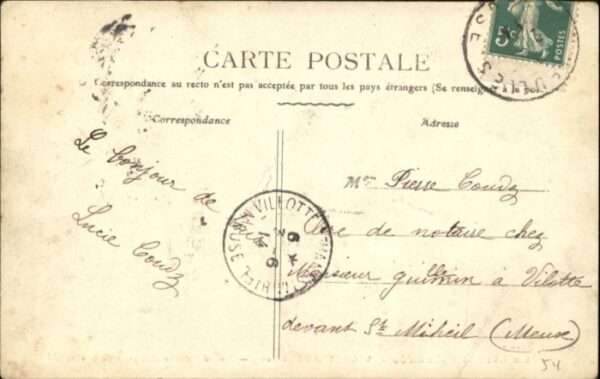 CARTE POSTALE
Correspondance au recto n'est pas acceptée par tous les pays étrangers (Se renseigner à la
Correspondance
Adresse
Le bonjour de
Lucie Coudz
5c
POSTES
VILLOTTE
MEUSE
Mr Pierre Coudz
de notaire chez
Monsieur guillemin à Vilotte
devant St Miheil (Meuse)
54